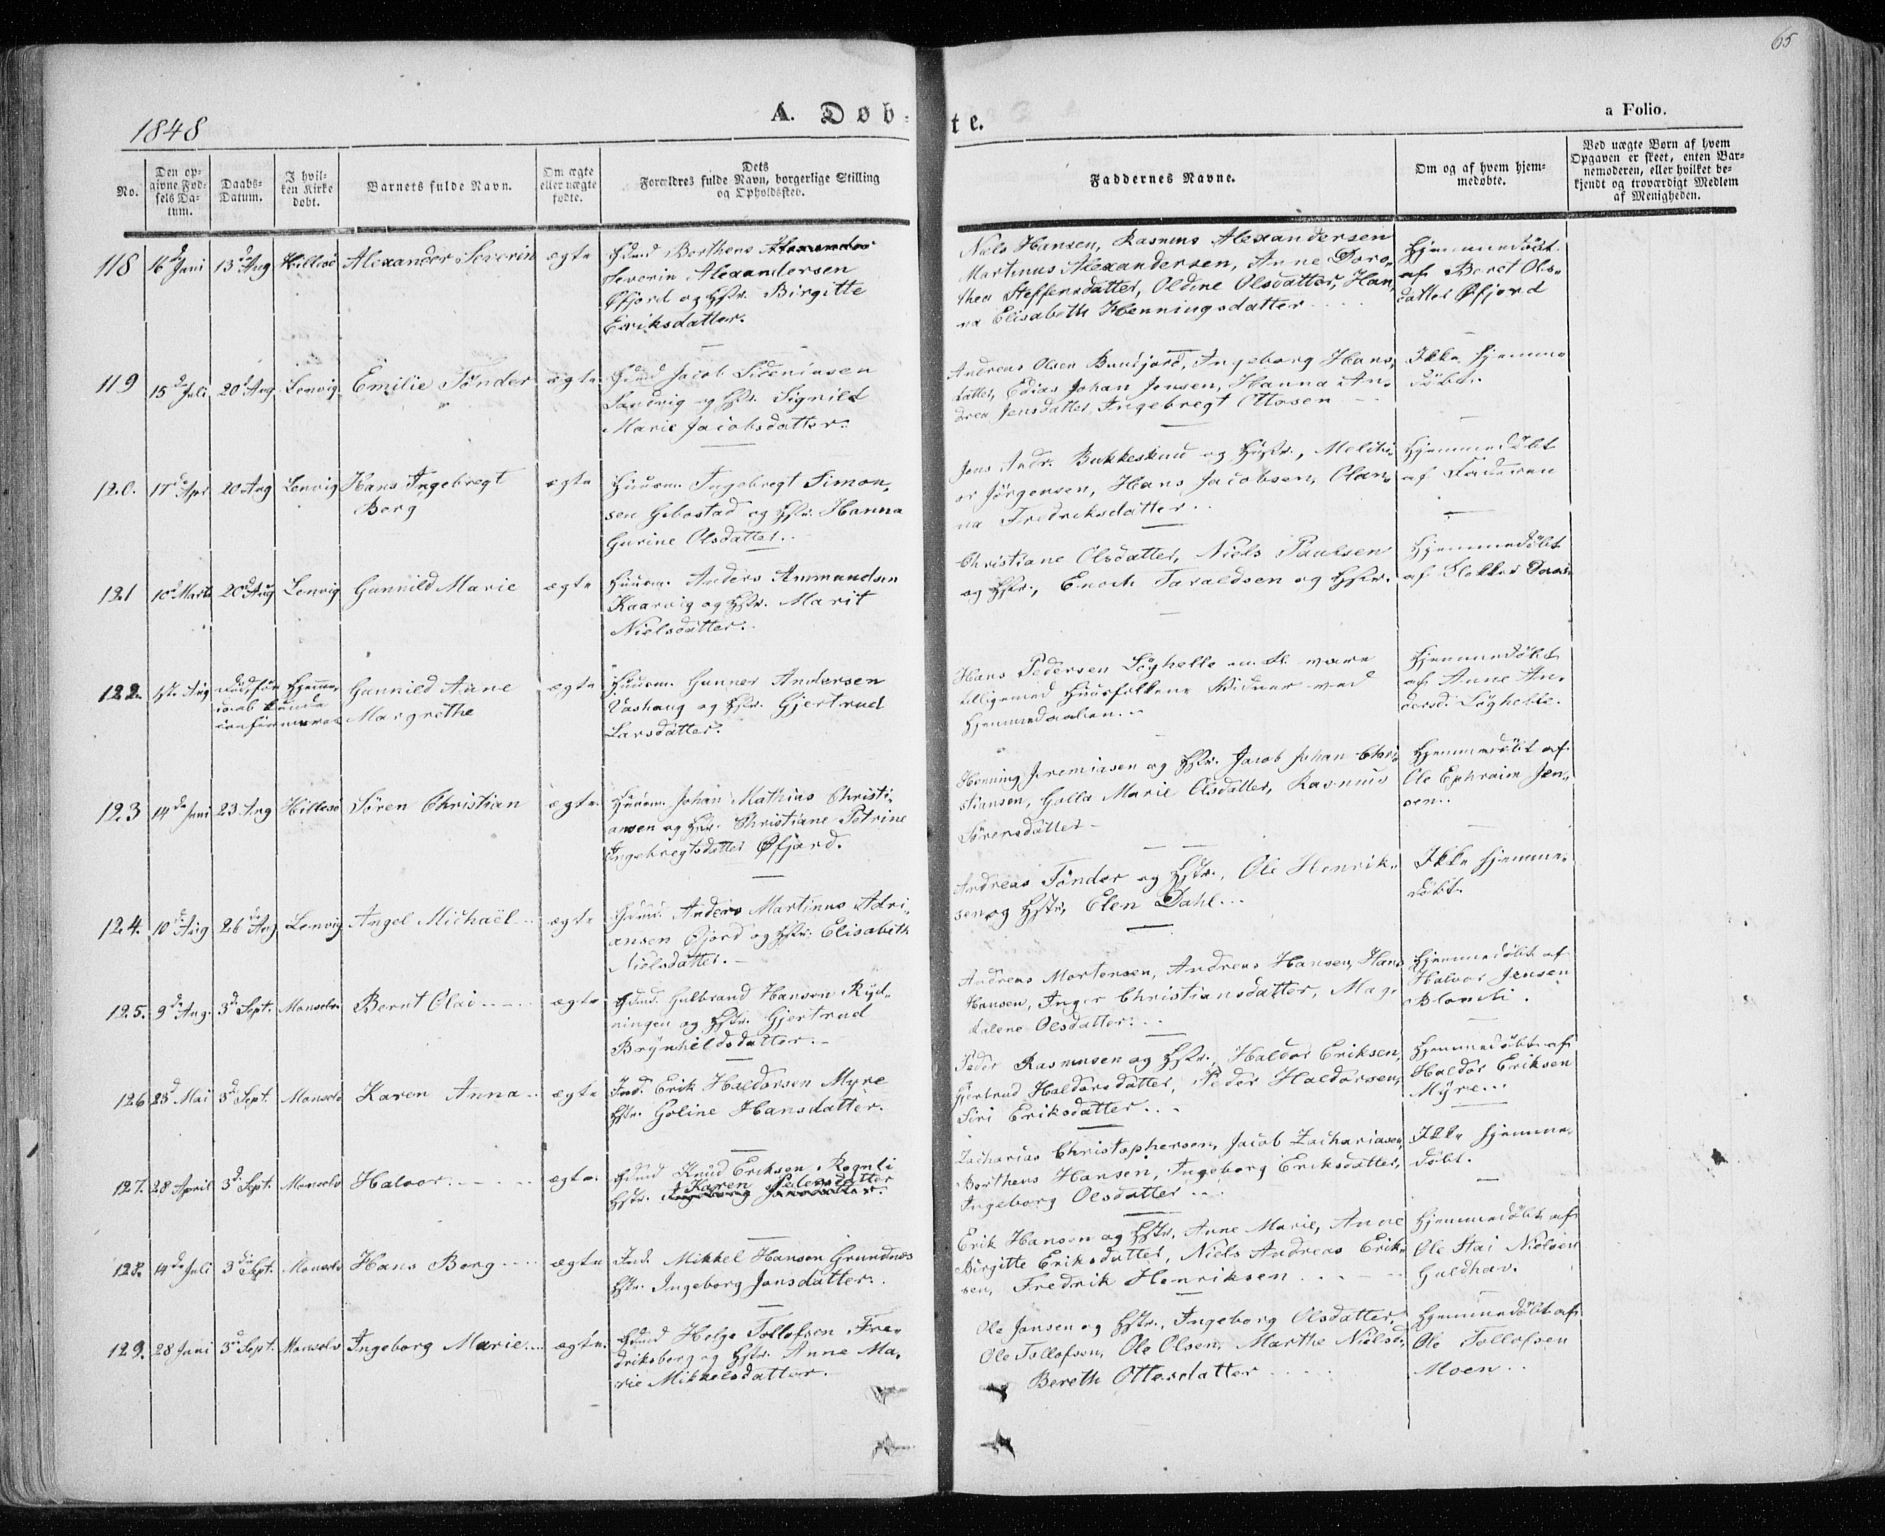 65
1848
A. Døb-
te.
a Folio.
No.
Den op-
givne Fød-
sels Da-
tum.
Daabs-
Datum.
I hvil-
ken Kirke
døbt.
Barnets fulde Navn.
Om ægte
eller uægte
fødte.
Dets
Forældres fulde Navn, borgerlige Stilling
og Opholdssted.
Faddernes Navne.
Om og af hvem hjem-
medøbte.
Ved uægte Børn af hvem
Opgaven er skeet, enten Bar-
nemoderen, eller hvilket be-
kjendt og troværdigt Medlem
af Menigheden.
118 16d Juni 13d Aug Hillesø Alexander Severin ægte
Gdmd Berthens Alexander
Severin Alexandersen
Øfjord og Hstr. Birgitte
Eriksdatter.
Niels Hansen, Rasmus Alexandersen
Martinus Alexandersen, Anne Doro-
thea Steffensdatter, Oldine Olsdatter, Han-
na Elisabeth Henningsdatter
Hjemmedøbt
af Beret Ols-
datter Øfjord
119 15d Juli 20d Aug Lenvig Emilie Tønder ægte
Gdmd Jacob
Sandvig og Hstr. Signild
Marie Jacobsdatter.
Andreas Olsen Bundjord, Ingeborg Hans-
datter, Edias Johan Jensen, Hanna An-
drea Jensdatter, Ingebregt Ottesen
Ikke hjemme
døbt.
120. 17d Apr 20 Aug Lenvig Hans Ingebregt
Borg
ægte
Huusm. Ingebregt Simon-
sen Gibostad og Hstr. Hanna
Gurine Olsdatter.
Jens Andr. Bukkeskind og Hstr., Meliti-
or Jørgensen, Hans Jacobsen, Olan-
na Fredriksdatter
Hjemmedøbt
af Faderen
121 10d Marts 20d Aug Lenvig Gunnild Marie ægte
Huusm. Anders Ammundsen
Kaarvig og Hstr. Marit
Nielsdatter.
Christiane Olsdatter, Niels Paulsen
og Hstr., Enoch Taraldsen og Hstr.
Hjemmedøbt
af Klokker
122. 1ste Aug Død, før Hjemme-
daab kunde
confirmeres
Gunnild Anne
Margrethe
ægte
Huusm. Gunner Andersen
Vashaug og Hstr. Gjertrud
Larsdatter.
Hans Pedersen Løghelle m. fl. vare
tilligemed Huusfolkene Vidner ved
Hjemmedaaben.
Hjemmedøbt
af Anne An-
dersd. Løghelle.
123 14de Juni 23 Aug Hillesø Sören Christian ægte.
Huusm. Johan Mathias Christi-
ansen og Hstr. Christiane Petrine
Ingebregtsdatter Øfjord.
Henning Jeremiasen og Hstr. Jacob Johan Chri-
stiansen, Golla Marie Olsdatter, Rasmus
Sørensdatter
Hjemmedøbt af
Ole Ephraim Jen-
sen.
124. 10d Aug 26de Aug Lenvig Angel Michaël ægte
Gdmd. Anders Martinus Adri-
ansen Øfjord og Hstr. Elisabeth
Nielsdatter.
Andreas Tønder og Hstr., Ole Henrik-
sen og Hstr, Elen Dahl
Ikke hjemme-
døbt.
125. 9d Aug. 3d Sept. Maaselv Bernt Olai ægte
Gdmd. Gulbrand Hansen Ryd-
ningen og Hstr. Gjertrud
Brynhildsdatter.
Andreas Mortensen, Andreas Hansen, Hans
Hansen, Inger Christiansdatter, Mag-
dalene Olsdatter.
Hjemmedøbt af
Halvor Jensen
Blomli.
126 25d Mai 3d Sept. Maaselv Karen Anna ægte
Ind. Erik Haldorsen Myre
Hstr. Goline Hansdatter.
Peder Rasmussen og Hstr., Haldor Eriksen,
Gjertrud Haldorsdatter, Peder Haldorsen,
Siri Eriksdatter.
Hjemmedøbt af
Haldor Eriksen
Myre.
127. 28 April 3d Sept. Maaselv Halvor ægte.
Gdmd Knud Eriksen Rognli
Karen Pedersdatter
Hstr. Ingeborg Jensdatter.
Zacharias Christophersen, Jacob Zachariasen,
Berthens Hansen, Ingeborg Eriksdatter,
Ingeborg Olsdatter
Ikke hjemme-
døbt.
128. 14de Juli 3de Sept. Maaselv Hans Borg ægte
Ind. Mikkel Hansen Grundnæs
Hstr. Ingeborg Jonsdatter.
Erik Hansen og Hstr, Arne Marie, Anne
Birgitte Eriksdatter, Niels Andreas Erik-
sen, Fredrik Henriksen
Hjemmedøbt af
Ole Stai Nielsen
Guldhav.
129. 28 Juni 3d Sept. Maaselv Ingeborg Marie ægte.
Gdmd Helge Tollofsen Fre-
driksberg og Hstr. Anne Ma-
rie Mikkelsdatter.
Ole Jensen og Hstr., Ingeborg Olsdatter,
Ole Tollofsen, Ole Olsen, Marthe Nielsd,
Bereth Ottesdatter
Hjemmedøbt af
Ole Tollofsen
Moen